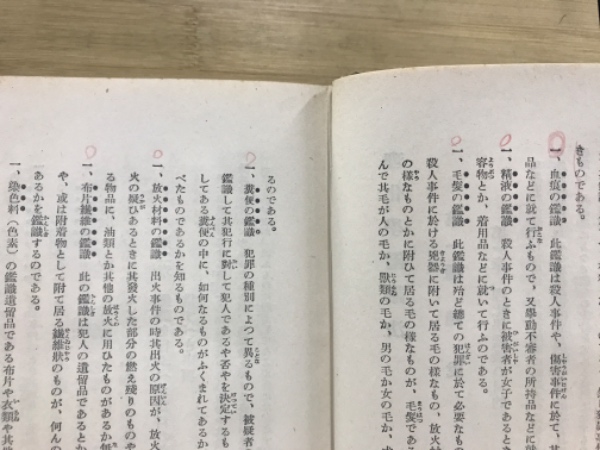 きものである。
一、血痕の鑑識　此鑑識は殺人事件や、傷害事件に於て、其
品などに就て行ふもので、又擧動不審者の所持品などに就
一、精液の鑑識　殺人事件のときに被害者が女子であるとき
容物とか、着用品などに就いて行ふのである。
一、毛髮の鑑識　此鑑識は殆ど總ての犯罪に於て必要なもの
殺人事件に於ける兇器に附いて居る毛の樣なもの、放火材
の樣なものとかに附ひて居る毛の樣なものが、毛髮である
んで其毛が人の毛か、獸類の毛か、男の毛か女の毛か、
るのである。
一、糞便の鑑識　犯罪の種別によつて異るもので、被疑者
鑑識して其犯行に對して犯人であるや否やを決定するも
してある糞便の中に、如何なるものがふくまれてあるか
べたものであるかを知るものである。
一、放火材料の鑑識　出火事件の時其出火の原因が、放火
火の疑ひあるときに其發火した部分の燃え殘りのものや
る物品に、油類とか其他の放火に用ひたものがあるか無
一、布片纖維の鑑識　此の鑑識は犯人の遺留品であるとか
や、或は附着物として附て居る纖維狀のものが、何んの
あるかを鑑識するのである。
一、染色料（色素）の鑑識遺留品である布片や衣類や其他